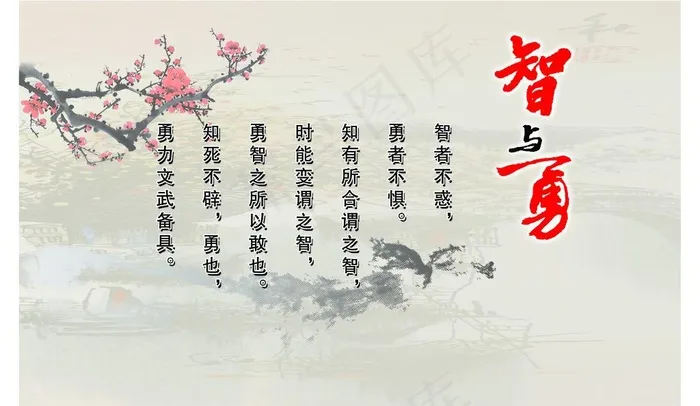 智与勇
智者不惑，
勇者不惧。
知有所合谓之智，
时能变谓之智，
勇智之所以敢也。
知死不辟，勇也，
勇力文武备具。